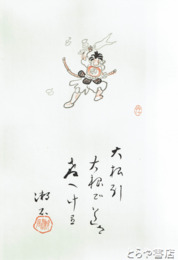 大根引
大根で道を
教へけり
とらや書店